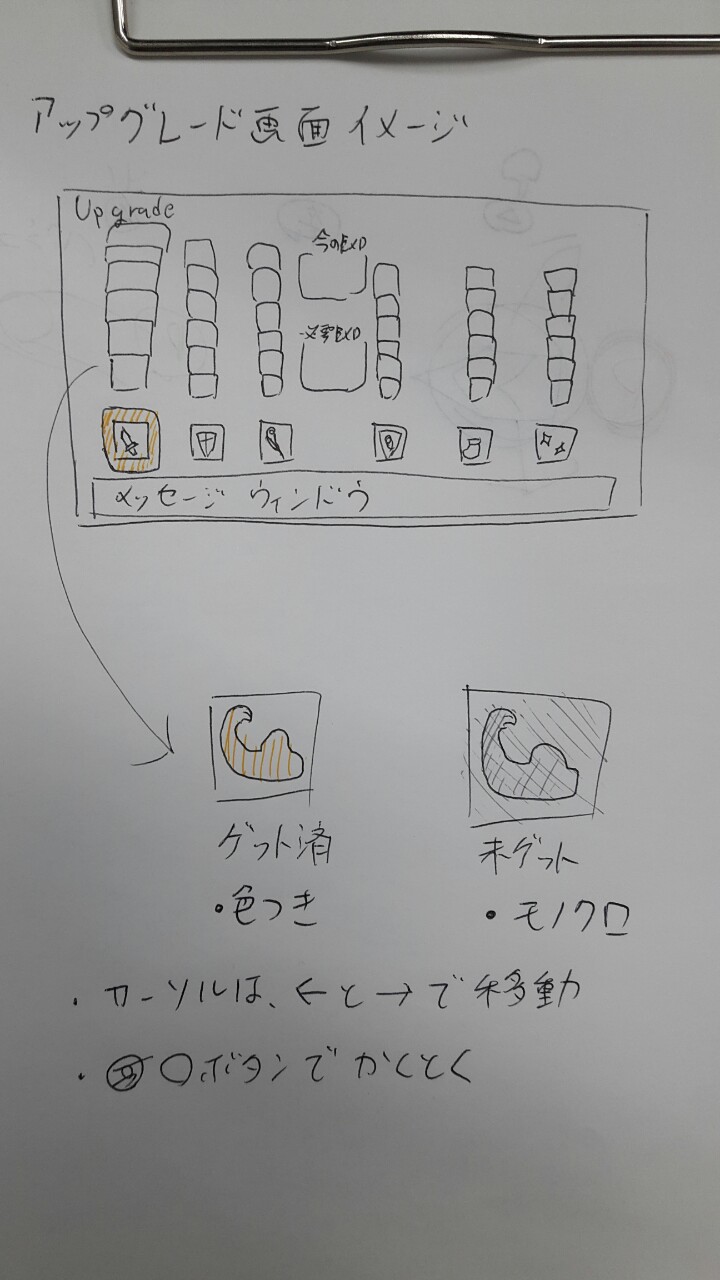 アップグレード画面イメージ
Upgrade
今のEXP
必要EXP
メッセージ ウィンドウ
ゲット済
・色つき
未ゲット
・モノクロ
・カーソルは、←と→で移動
・○ボタンでかくとく